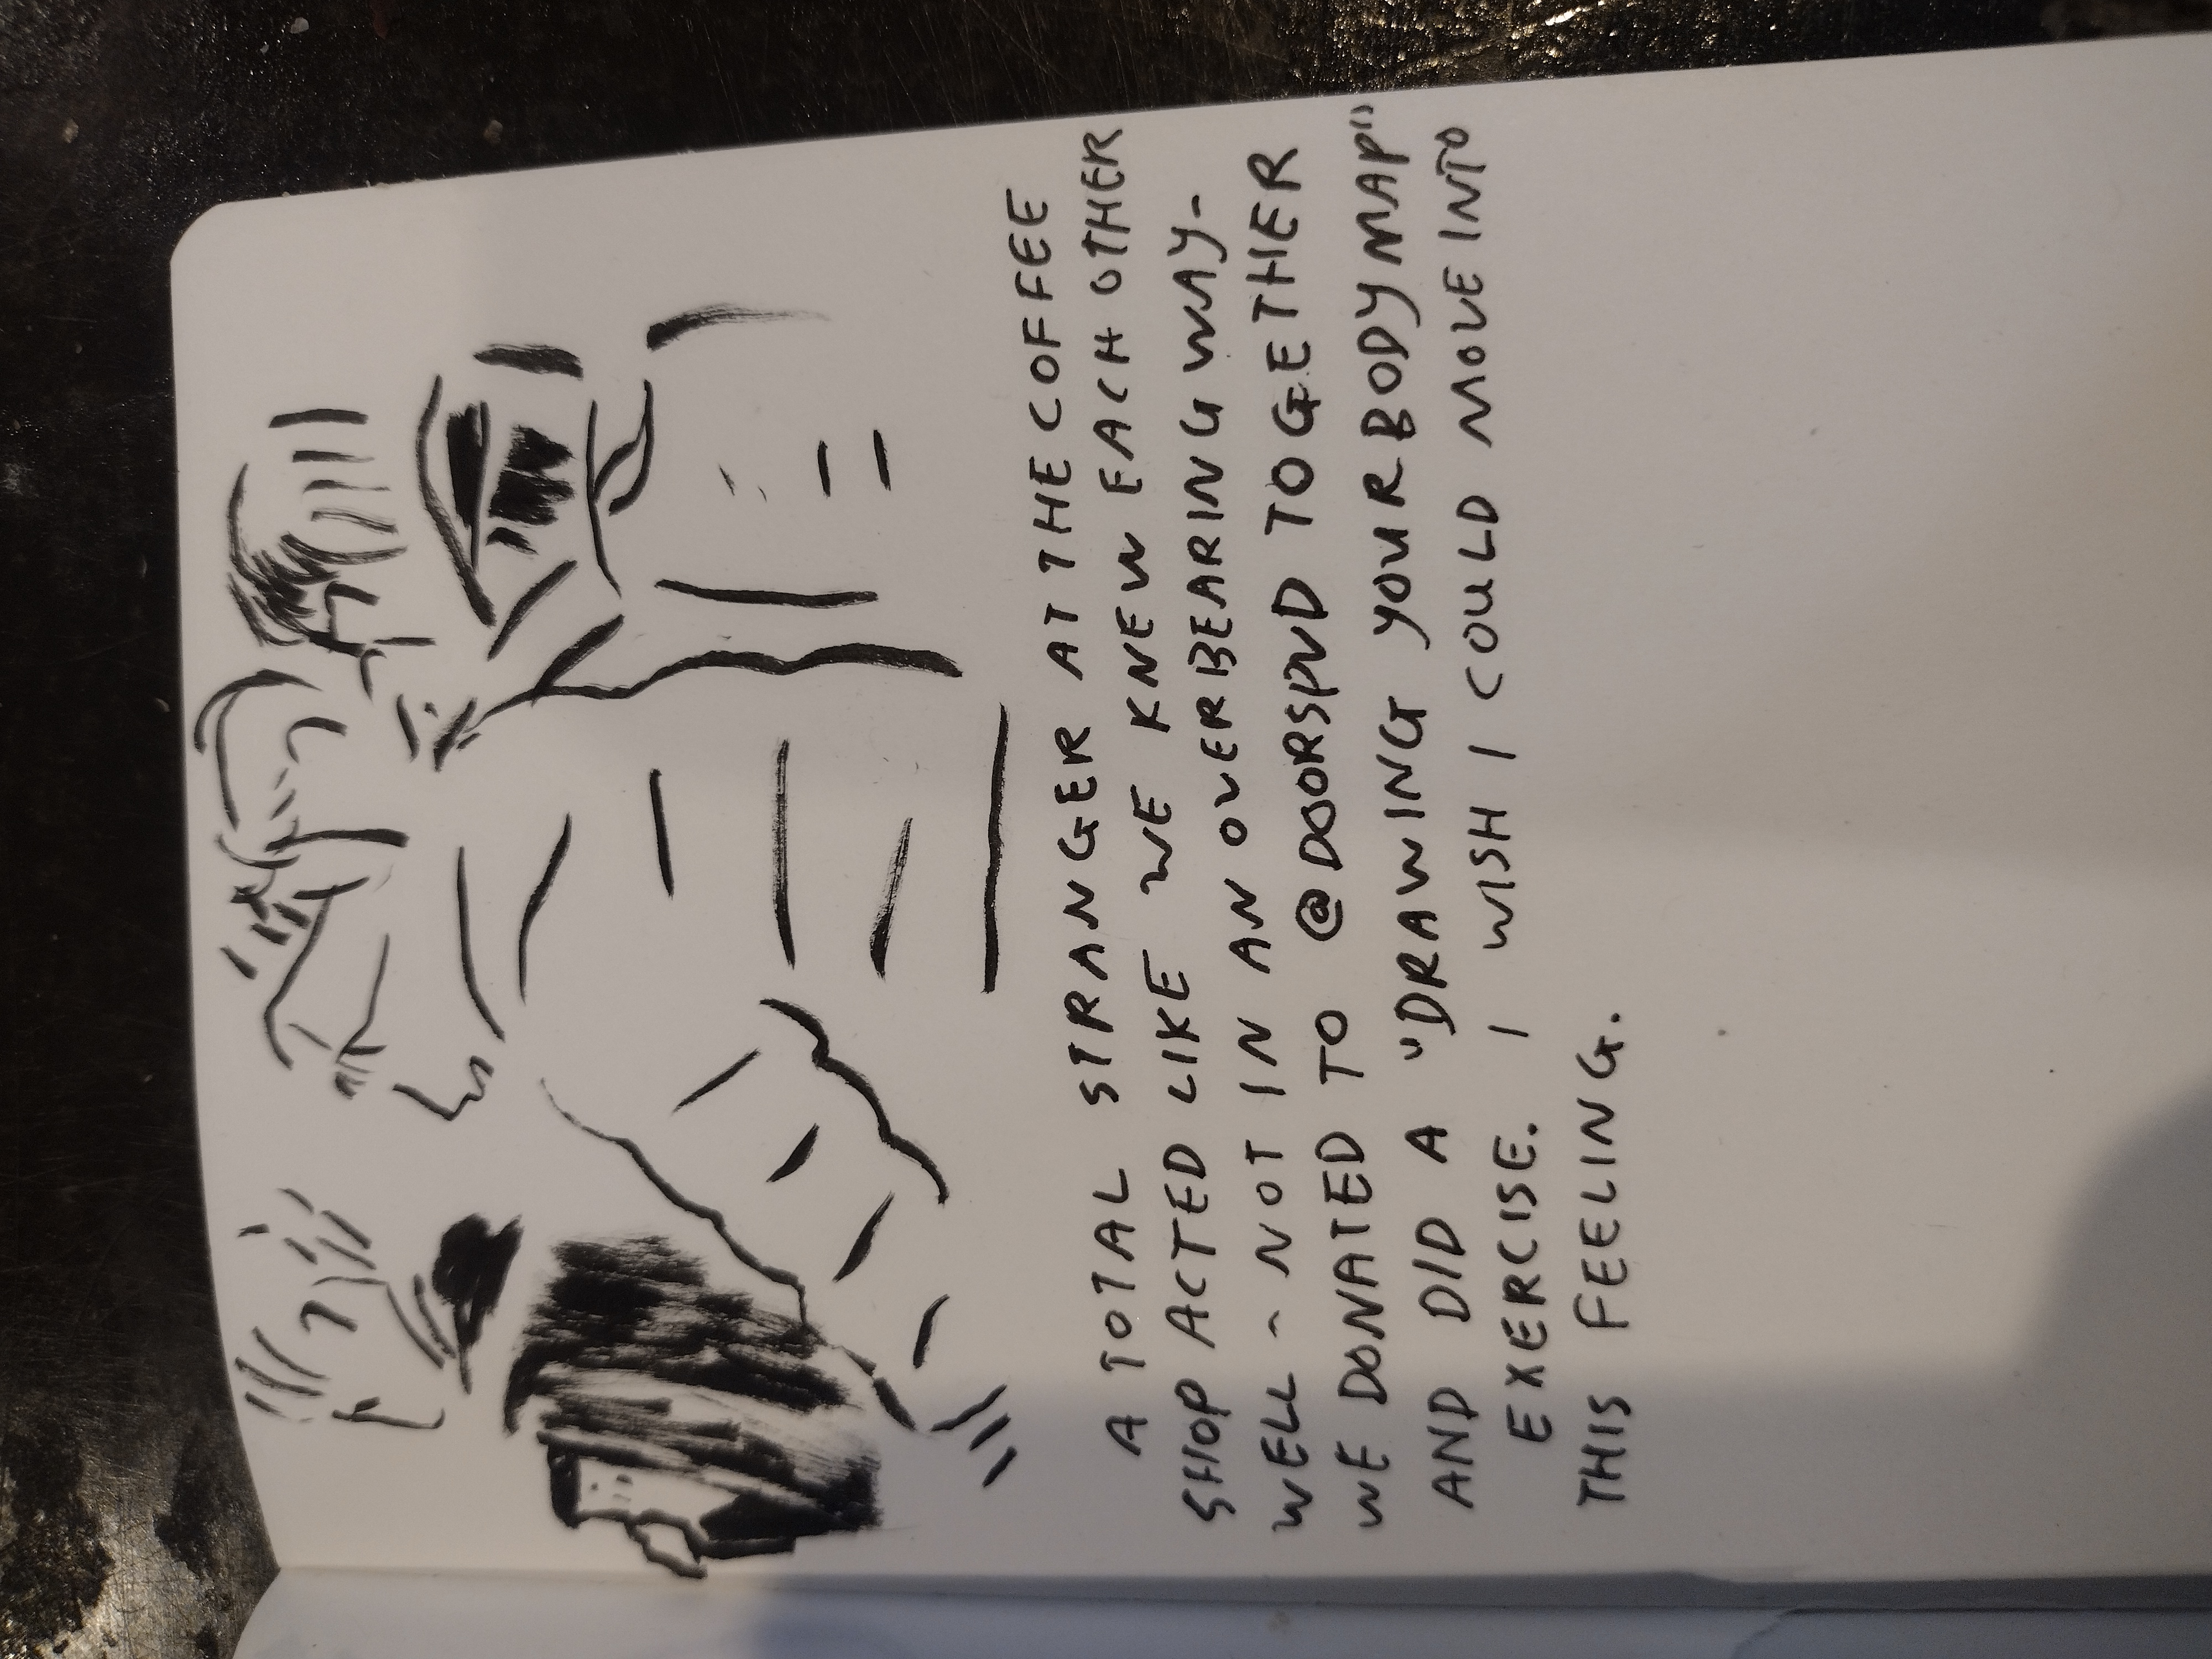 A TOTAL STRANGER AT THE COFFEE
SHOP ACTED LIKE WE KNEW EACH OTHER
WELL - NOT IN AN OVERBEARING WAY-
WE DONATED TO @DOORSPVD TOGETHER
AND DID A "DRAWING YOUR BODY MAP"
EXERCISE. I WISH I COULD MOVE INTO
THIS FEELING.